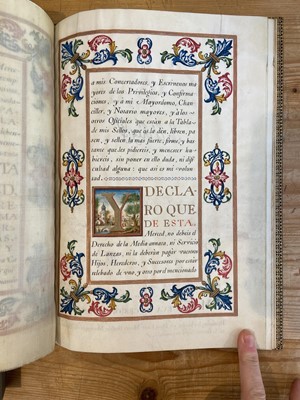 a mis Conservadores, y Escrivanos ma
yores de los Previlegios, y Confirma
ciones, y à mi Mayordomo, Chan
ciller, y Notario mayores, y à los
otros Oficiales que están à la Tabla
de mis Sellos, que os la dén, libren, pa
sen, y sellen la mas fuerte, firme, y bas
tante que les pidiereis, y menester hu
biereis, sin poner en ello duda, ni difi
cultad alguna: que asi es mi volun
tad.
DECLA
RO QUE
DE ESTA
Merced, no debeis el
Derecho de la Media annata, ni Servicio
de Lanzas, ni la deberán pagar vuestros
Hijos, Herederos, y Successores por estár
relebado de uno, y otro por el mencionado